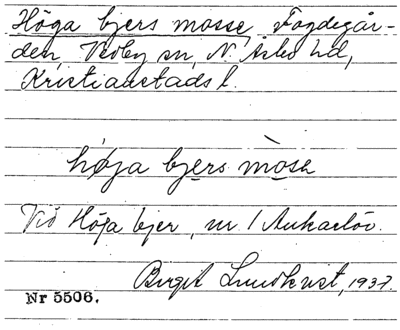 Höga bjers mosse, Fogdegår-
den, Vedby sn, N. Åsbo hd,
Kristianstads l.
höja bjers mòse
Vid Höja bjer, nr 1 Ankarlöv.
Birgit Lundkvist, 1937.
Nr 5506.